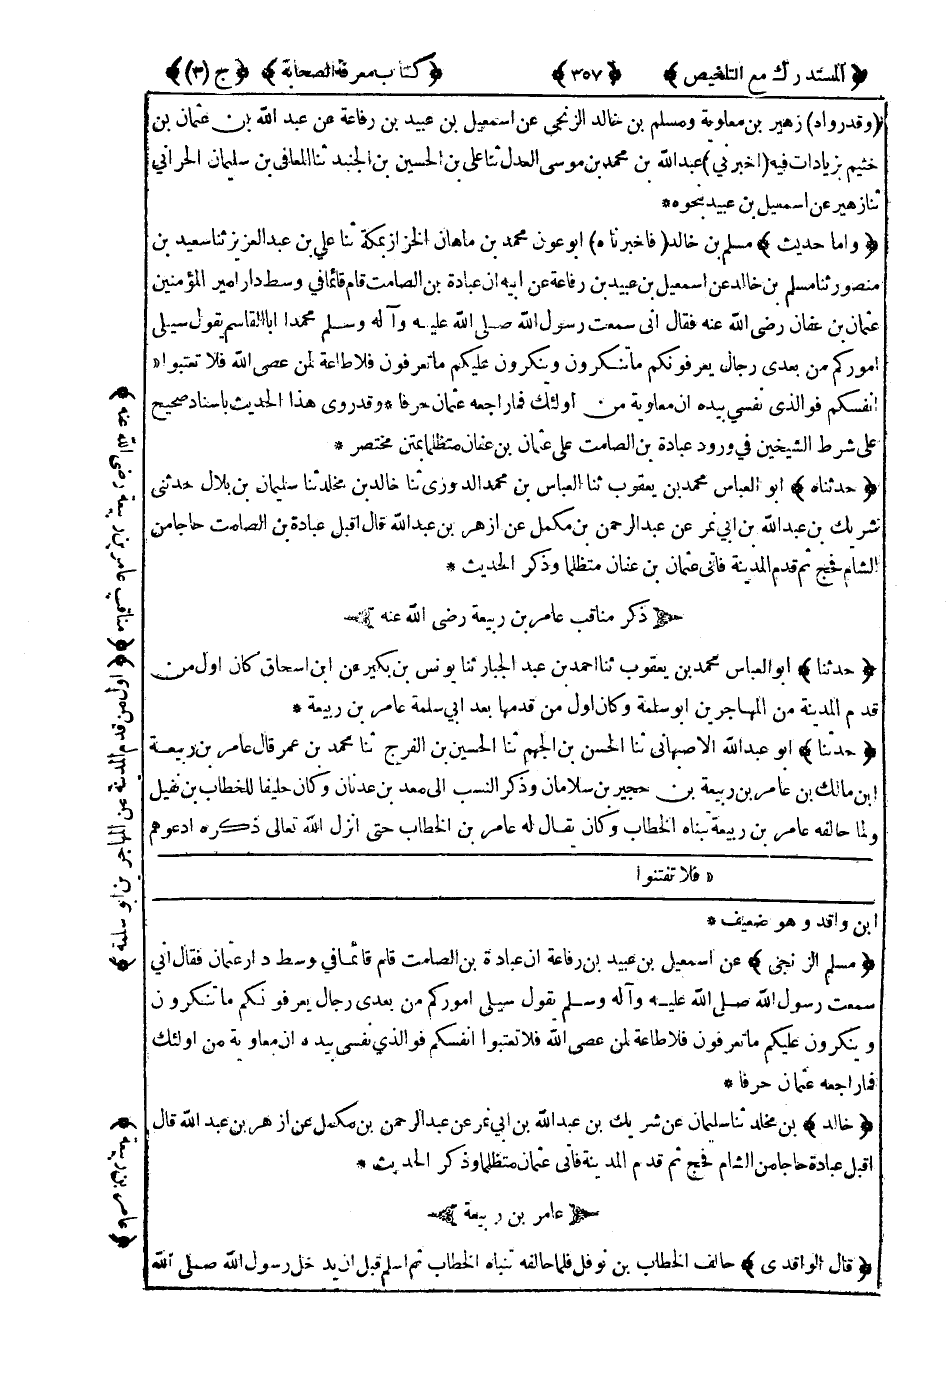 ﴿المستدرك مع التلخيص﴾ ﴿٣٥٧﴾ ﴿كتاب معرفة الصحابة﴾ ﴿ج (٣)﴾
(وقدرواه) زهير بن معاوية ومسلم بن خالد الزنجي عن اسمعيل بن عبيد بن رفاعة عن عبد الله بن عثمان بن
خثيم بزيادات فيه (اخبرني) عبدالله بن محمد بن موسى العدل ثنا علي بن الحسين بن الجنيد ثنا المعافى بن سليمان الحراني
ثنا زهير عن اسمعيل بن عبيد بنحوه*
﴿واما حديث﴾ مسلم بن خالد (فاخبرناه) ابو عون محمد بن ماهان الخزاز بمكة ثنا علي بن عبد العزيز ثنا سعيد بن
منصور ثنا مسلم بن خالد عن اسمعيل بن عبيد بن رفاعة عن ابيه ان عبادة بن الصامت قام قائما في وسط دار امير المؤمنين
عثمان بن عفان رضى الله عنه فقال انى سمعت رسول الله صلى الله عليه وآله وسلم محمدا ابا القاسم يقول سيلى
اموركم من بعدى رجال يعرفونكم ما تنكرون وينكرون عليكم ما تعرفون فلا طاعة لمن عصى الله فلا تعتبوا «
انفسكم فوالذى نفسي بيده ان معاوية من اولئك فما راجعه عثمان حرفا *وقدروى هذا الحديث باسناد صحيح
على شرط الشيخين في ورود عبادة بن الصامت على عثمان بن عفان متظلما بمتن مختصر *
﴿حدثناه﴾ ابو العباس محمد بن يعقوب ثنا العباس بن محمد الدورى ثنا خالد بن مخلد ثنا سليمان بن بلال حدثنى
شريك بن عبدالله بن ابي نمر عن عبدالرحمن بن مكمل عن ازهر بن عبدالله قال اقبل عبادة بن الصامت حاجا من
الشام فحج ثم قدم المدينة فاتى عثمان بن عفان متظلما وذكر الحديث *
﴿ذكر مناقب عامر بن ربيعة رضى الله عنه﴾
﴿حدثنا﴾ ابو العباس محمد بن يعقوب ثنا احمد بن عبد الجبار ثنا يونس بن بكير عن ابن اسحاق كان اول من
قدم المدينة من المهاجرين ابوسلمة وكان اول من قدمها بعد ابي سلمة عامر بن ربيعة *
﴿حدثنا﴾ ابو عبدالله الاصبهانى ثنا الحسن بن الجهم ثنا الحسين بن الفرج ثنا محمد بن عمر قال عامر بن ربيعة
ابن مالك بن عامر بن ربيعة بن حجير بن سلامان وذكر النسب الى معد بن عدنان وكان حليفا للخطاب بن نفيل
ولما حالفه عامر بن ربيعة تبناه الخطاب وكان يقال له عامر بن الخطاب حتى انزل الله تعالى ذكره ادعوهم
« فلا تفتنوا
ابن واقد وهو ضعيف *
﴿مسلم الزنجى﴾ عن اسمعيل بن عبيد بن رفاعة ان عبادة بن الصامت قام قائما في وسط دار عثمان فقال اني
سمعت رسول الله صلى الله عليه وآله وسلم يقول سيلى اموركم من بعدى رجال يعرفونكم ما تنكرون
وينكرون عليكم ما تعرفون فلا طاعة لمن عصى الله فلا تعتبوا انفسكم فوالذي نفسى بيده ان معاوية من اولئك
فما راجعه عثمان حرفا *
﴿خالد﴾ بن مخلد ثنا سليمان عن شريك بن عبدالله بن ابي نمر عن عبدالرحمن بن مكمل عن ازهر بن عبد الله قال
اقبل عبادة حاجا من الشام فحج ثم قدم المدينة فاتى عثمان متظلما وذكر الحديث *
﴿عامر بن ربيعة﴾
﴿قال الواقدى﴾ حالف الخطاب بن نوفل فلما حالفه تبناه الخطاب ثم اسلم قبل ان يدخل رسول الله صلى الله
﴿مناقب عامر بن ربيعة رضى الله عنه﴾
﴿اول من قدم المدينة من المهاجرين ابو سلمة﴾
﴿عامر بن ربيعة﴾